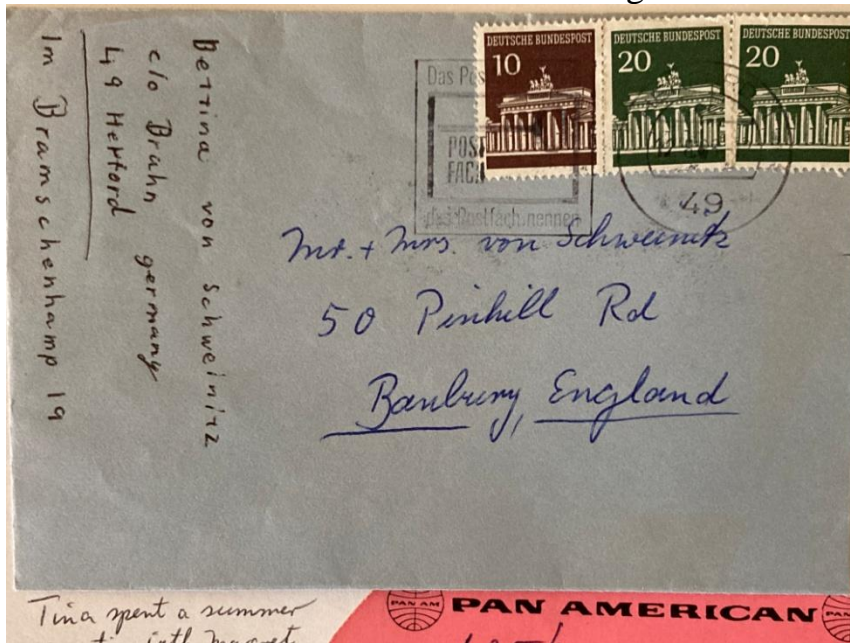 Bettina von Schweinitz
c/o Brahn germany
49 Herford
Im Bramschenhamp 19
DEUTSCHE BUNDESPOST
10
DEUTSCHE BUNDESPOST
20
DEUTSCHE BUNDESPOST
20
Das
POST
FACH
das Postfach nennen
49
Mr. + Mrs. von Schweinitz
50 Pinhill Rd
Banbury, England
Tina spent a summer
PAN AM
PAN AMERICAN
PAN AM